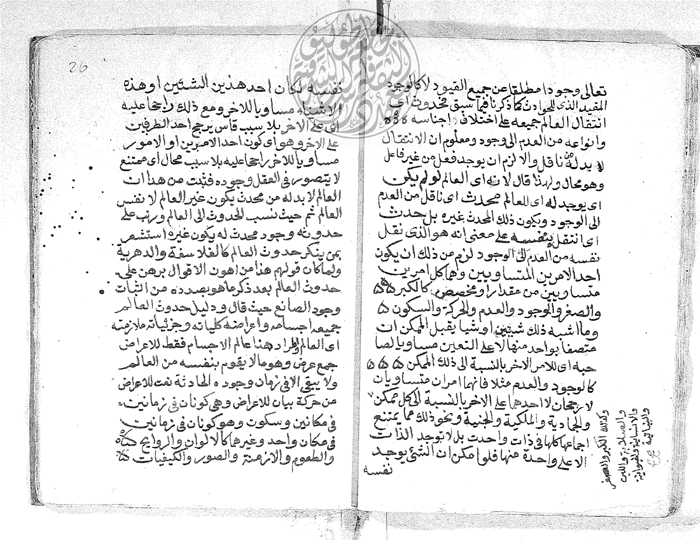 تعالى وجودا مطلقا عن جميع القيود لا كالوجود
المقيد الذي للحوادث كما ذكرنا فيما سبق فحدوث اي
انتقال العالم جميعه على اختلاف اجناسه
وانواعه من العدم الى وجود ومعلوم ان الانتقال
لا بد له من ناقل والا لزم ان يوجد فعل من غير فاعل
وهو محال ولهذا قال لانه اي العالم لو لم يكن
اي يوجد له اي للعالم محدث اي ناقل من العدم
الى الوجود ويكون ذلك المحدث غيره بل حدث
اي انتقل بنفسه على معنى انه هو الذي نقل
نفسه من العدم الى الوجود لزم من ذلك ان يكون
احد الامرين المتساويين وهما كل امرين
متساويين من مقدار او مخصص كالكبر
والصغر والوجود والعدم والحركة والسكون
وما اشبه ذلك شيئين او شيا يقبل الممكن ان
متصفا بواحد منها لا على التعين مساويا لصا
حبه اي للامر الاخر بالنسبة الى ذلك الممكن
كالوجود والعدم مثلا فانهما امران متساويان
لا رجحان لاحدهما على الاخر بالنسبة الى كل ممكن
والجمادية والملكية والجنية ونحو ذلك مما يمتنع
اجتماعها كلها في ذات واحدة بدلا توجد الذات
الا على واحدة منها فلو امكن ان الشئ يوجد
نفسه
وكذلك الكبر والصغر
والصلابة واللين
والانسانية والحيوانية
والنباتية
26
نفسه لكان احد هذين الشئين او هذه
الاشياء مساويا للاخر ومع ذلك راجحا عليه
اي على الاخر بلا سبب قاس يرجح احد الطرفين
على الاخر وهو اي كون احد الامرين او الامور
مساويا للاخر راجحا عليه بلا سبب محال اي ممتنع
لا يتصور في العقل وجوده فثبت من هذا ان
العالم لا بد له من محدث يكون غير العالم لا نفس
العالم ثم حيث نسب الحدوث الى العالم ورتب على
حدوثه وجود محدث له يكون غيره استشعر
بمن ينكر حدوث العالم كالفلاسفة والدهرية
ولما كان قولهم هذا من اهون الاقوال برهن على
حدوث العالم بعد ذكر ما هو بصدده من اثبات
وجود الصانع حيث قال ودليل حدوث العالم
جميعه اجسامه واعراضه كلياته وجزئياته ملازمته
اي العالم والمراد هنا عالم الاجسام فقط للاعراض
جمع عرض وهو ما لا يقوم بنفسه من العالم
ولا يبقى الا في زمان وجوده الحادثة نعت للاعراض
من حركة بيان للاعراض وهي كونان في زمانين
في مكانين وسكون وهو كونان في زمانين
في مكان واحد وغيرهما كالالوان والروايح
والطعوم والازمنة والصور والكيفيات